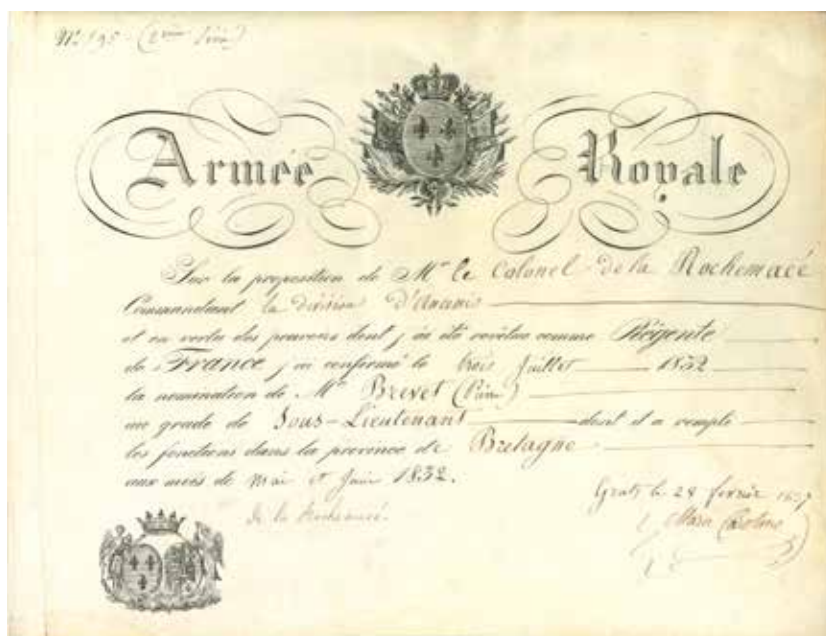 N° 195 - (2ème Série)
Armée Royale
Sur la proposition de Mr le Colonel de la Rochemacé
Commandant la division d'Ancenis
et en vertu des pouvoirs dont j'ai été revêtue comme Régente
de France j'ai confirmé le trois Juillet 1832
la nomination de Mr Brevet (Pierre)
au grade de Sous-Lieutenant dont il a rempli
les fonctions dans la province de Bretagne
aux mois de Mai et Juin 1832.
Gratz le 28 février 1837
de la Rochemacé.
Marie Caroline